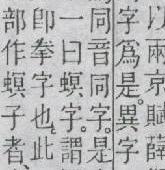 以兩京賦薛
字爲是異字
同音同字是
一曰螟字謂
卽拳字也此
部作螟子者